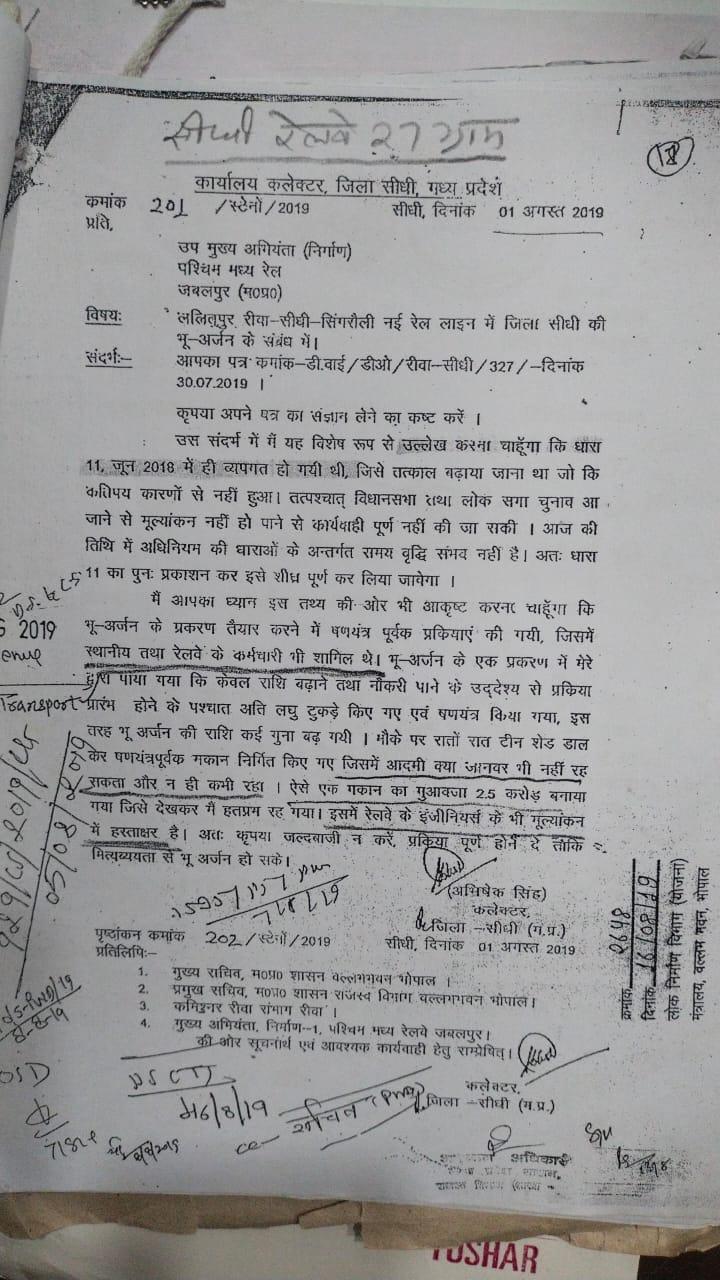 सीधी रेलवे 27 ग्राम
18
कार्यालय कलेक्टर, जिला सीधी, मध्य प्रदेश
कमांक 201 /स्टेनो/2019 सीधी, दिनांक 01 अगस्त 2019
प्रति,
उप मुख्य अभियंता (निर्माण)
पश्चिम मध्य रेल
जबलपुर (म0प्र0)
विषयः ललितपुर रीवा–सीधी–सिंगरौली नई रेल लाइन में जिला सीधी की
भू–अर्जन के संबंध में।
संदर्भः– आपका पत्र कमांक–डी.वाई/डीओ/रीवा–सीधी/327/–दिनांक
30.07.2019 ।
कृपया अपने पत्र का संज्ञान लेने का कष्ट करें ।
उस संदर्भ में मैं यह विशेष रूप से उल्लेख करना चाहूँगा कि धारा
11, जून 2018 में ही व्यपगत हो गयी थी, जिसे तत्काल बढ़ाया जाना था जो कि
कतिपय कारणों से नहीं हुआ। तत्पश्चात् विधानसभा तथा लोक सभा चुनाव आ
जाने से मूल्यांकन नहीं हो पाने से कार्यवाही पूर्ण नहीं की जा सकी । आज की
तिथि में अधिनियम की धाराओं के अन्तर्गत समय वृद्धि संभव नहीं है। अतः धारा
11 का पुनः प्रकाशन कर इसे शीघ्र पूर्ण कर लिया जावेगा ।
मैं आपका ध्यान इस तथ्य की ओर भी आकृष्ट करना चाहूँगा कि
भू–अर्जन के प्रकरण तैयार करने में षणयंत्र पूर्वक प्रकियाएं की गयी, जिसमें
स्थानीय तथा रेलवे के कर्मचारी भी शामिल थे। भू–अर्जन के एक प्रकरण में मेरे
द्वारा पाया गया कि केवल राशि बढ़ाने तथा नौकरी पाने के उद्देश्य से प्रकिया
प्रारंभ होने के पश्चात अति लघु टुकड़े किए गए एवं षणयंत्र किया गया, इस
तरह भू अर्जन की राशि कई गुना बढ़ गयी । मौके पर रातों रात टीन शेड डाल
कर षणयंत्रपूर्वक मकान निर्मित किए गए जिसमें आदमी क्या जानवर भी नहीं रह
सकता और न ही कभी रहा । ऐसे एक मकान का मुआवजा 2.5 करोड़ बनाया
गया जिसे देखकर मैं हतप्रभ रह गया। इसमें रेलवे के इंजीनियर्स के भी मूल्यांकन
में हस्ताक्षर है। अतः कृपया जल्दबाजी न करें, प्रक्रिया पूर्ण होने दे ताकि
मित्यव्ययता से भू अर्जन हो सके।
2019
Transport
929/
05/08/2019
7/8/19
(अभिषेक सिंह)
कलेक्टर,
जिला –सीधी (म.प्र.)
पृष्ठांकन कमांक 202/स्टेनो/2019 सीधी, दिनांक 01 अगस्त 2019
प्रतिलिपिः–
1. मुख्य सचिव, म0प्र0 शासन वल्लभभवन भोपाल ।
2. प्रमुख सचिव, म0प्र0 शासन राजस्व विभाग वल्लभभवन भोपाल।
3. कमिश्नर रीवा संभाग रीवा ।
4. मुख्य अभियंता, निर्माण–1, पश्चिम मध्य रेलवे जबलपुर।
की ओर सूचनार्थ एवं आवश्यक कार्यवाही हेतु सम्प्रेषित्।
कलेक्टर,
जिला –सीधी (म.प्र.)
कमांक 2648
दिनांक 16/08/19
लोक निर्माण विभाग (योजना)
मंत्रालय, वल्लभ भवन, भोपाल
8-8-19
OSD
6/8/19
अधिकारी
TUSHAR